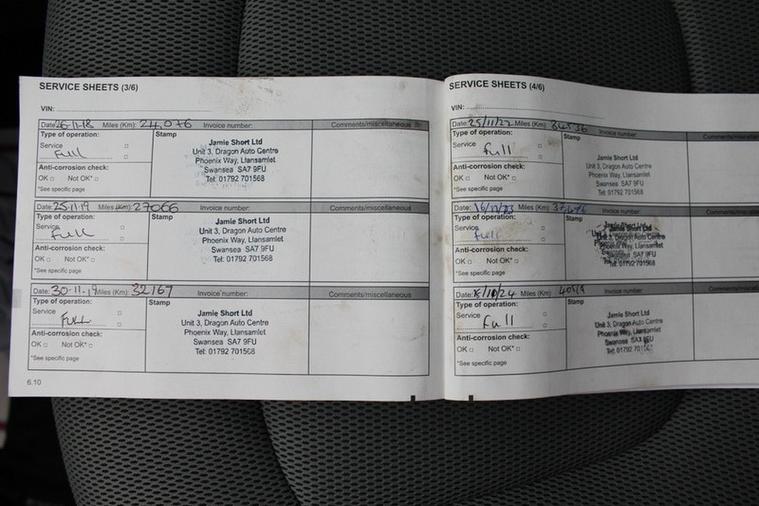 SERVICE SHEETS (3/6)
VIN:
Date: 26-11-18 Miles (Km): 24,076 Invoice number: Comments/miscellaneous
Type of operation: Stamp
Service
Full
Anti-corrosion check:
OK Not OK*
*See specific page
Jamie Short Ltd
Unit 3, Dragon Auto Centre
Phoenix Way, Llansamlet
Swansea SA7 9FU
Tel: 01792 701568
Date: 25-11-19 Miles (Km): 27066 Invoice number: Comments/miscellaneous
Type of operation: Stamp
Service
Full
Anti-corrosion check:
OK Not OK*
*See specific page
Jamie Short Ltd
Unit 3, Dragon Auto Centre
Phoenix Way, Llansamlet
Swansea SA7 9FU
Tel: 01792 701568
Date: 30-11-19 Miles (Km): 32167 Invoice number: Comments/miscellaneous
Type of operation: Stamp
Service
Full
Anti-corrosion check:
OK Not OK*
*See specific page
Jamie Short Ltd
Unit 3, Dragon Auto Centre
Phoenix Way, Llansamlet
Swansea SA7 9FU
Tel: 01792 701568
6.10
SERVICE SHEETS (4/6)
VIN:
Date: 25/11/22 Miles (Km): 34536 Invoice number: Comments/miscellaneous
Type of operation: Stamp
Service
Full
Anti-corrosion check:
OK Not OK*
*See specific page
Jamie Short Ltd
Unit 3, Dragon Auto Centre
Phoenix Way, Llansamlet
Swansea SA7 9FU
Tel: 01792 701568
Date: Miles (Km): Invoice number: Comments/miscellaneous
Type of operation: Stamp
Service
Full
Anti-corrosion check:
OK Not OK*
*See specific page
Jamie Short Ltd
Unit 3, Dragon Auto Centre
Phoenix Way, Llansamlet
Swansea SA7 9FU
Tel: 01792 701568
Date: Miles (Km): Invoice number: Comments/miscellaneous
Type of operation: Stamp
Service
Full
Anti-corrosion check:
OK Not OK*
*See specific page
Jamie Short Ltd
Unit 3, Dragon Auto Centre
Phoenix Way, Llansamlet
Swansea SA7 9FU
Tel: 01792 701568